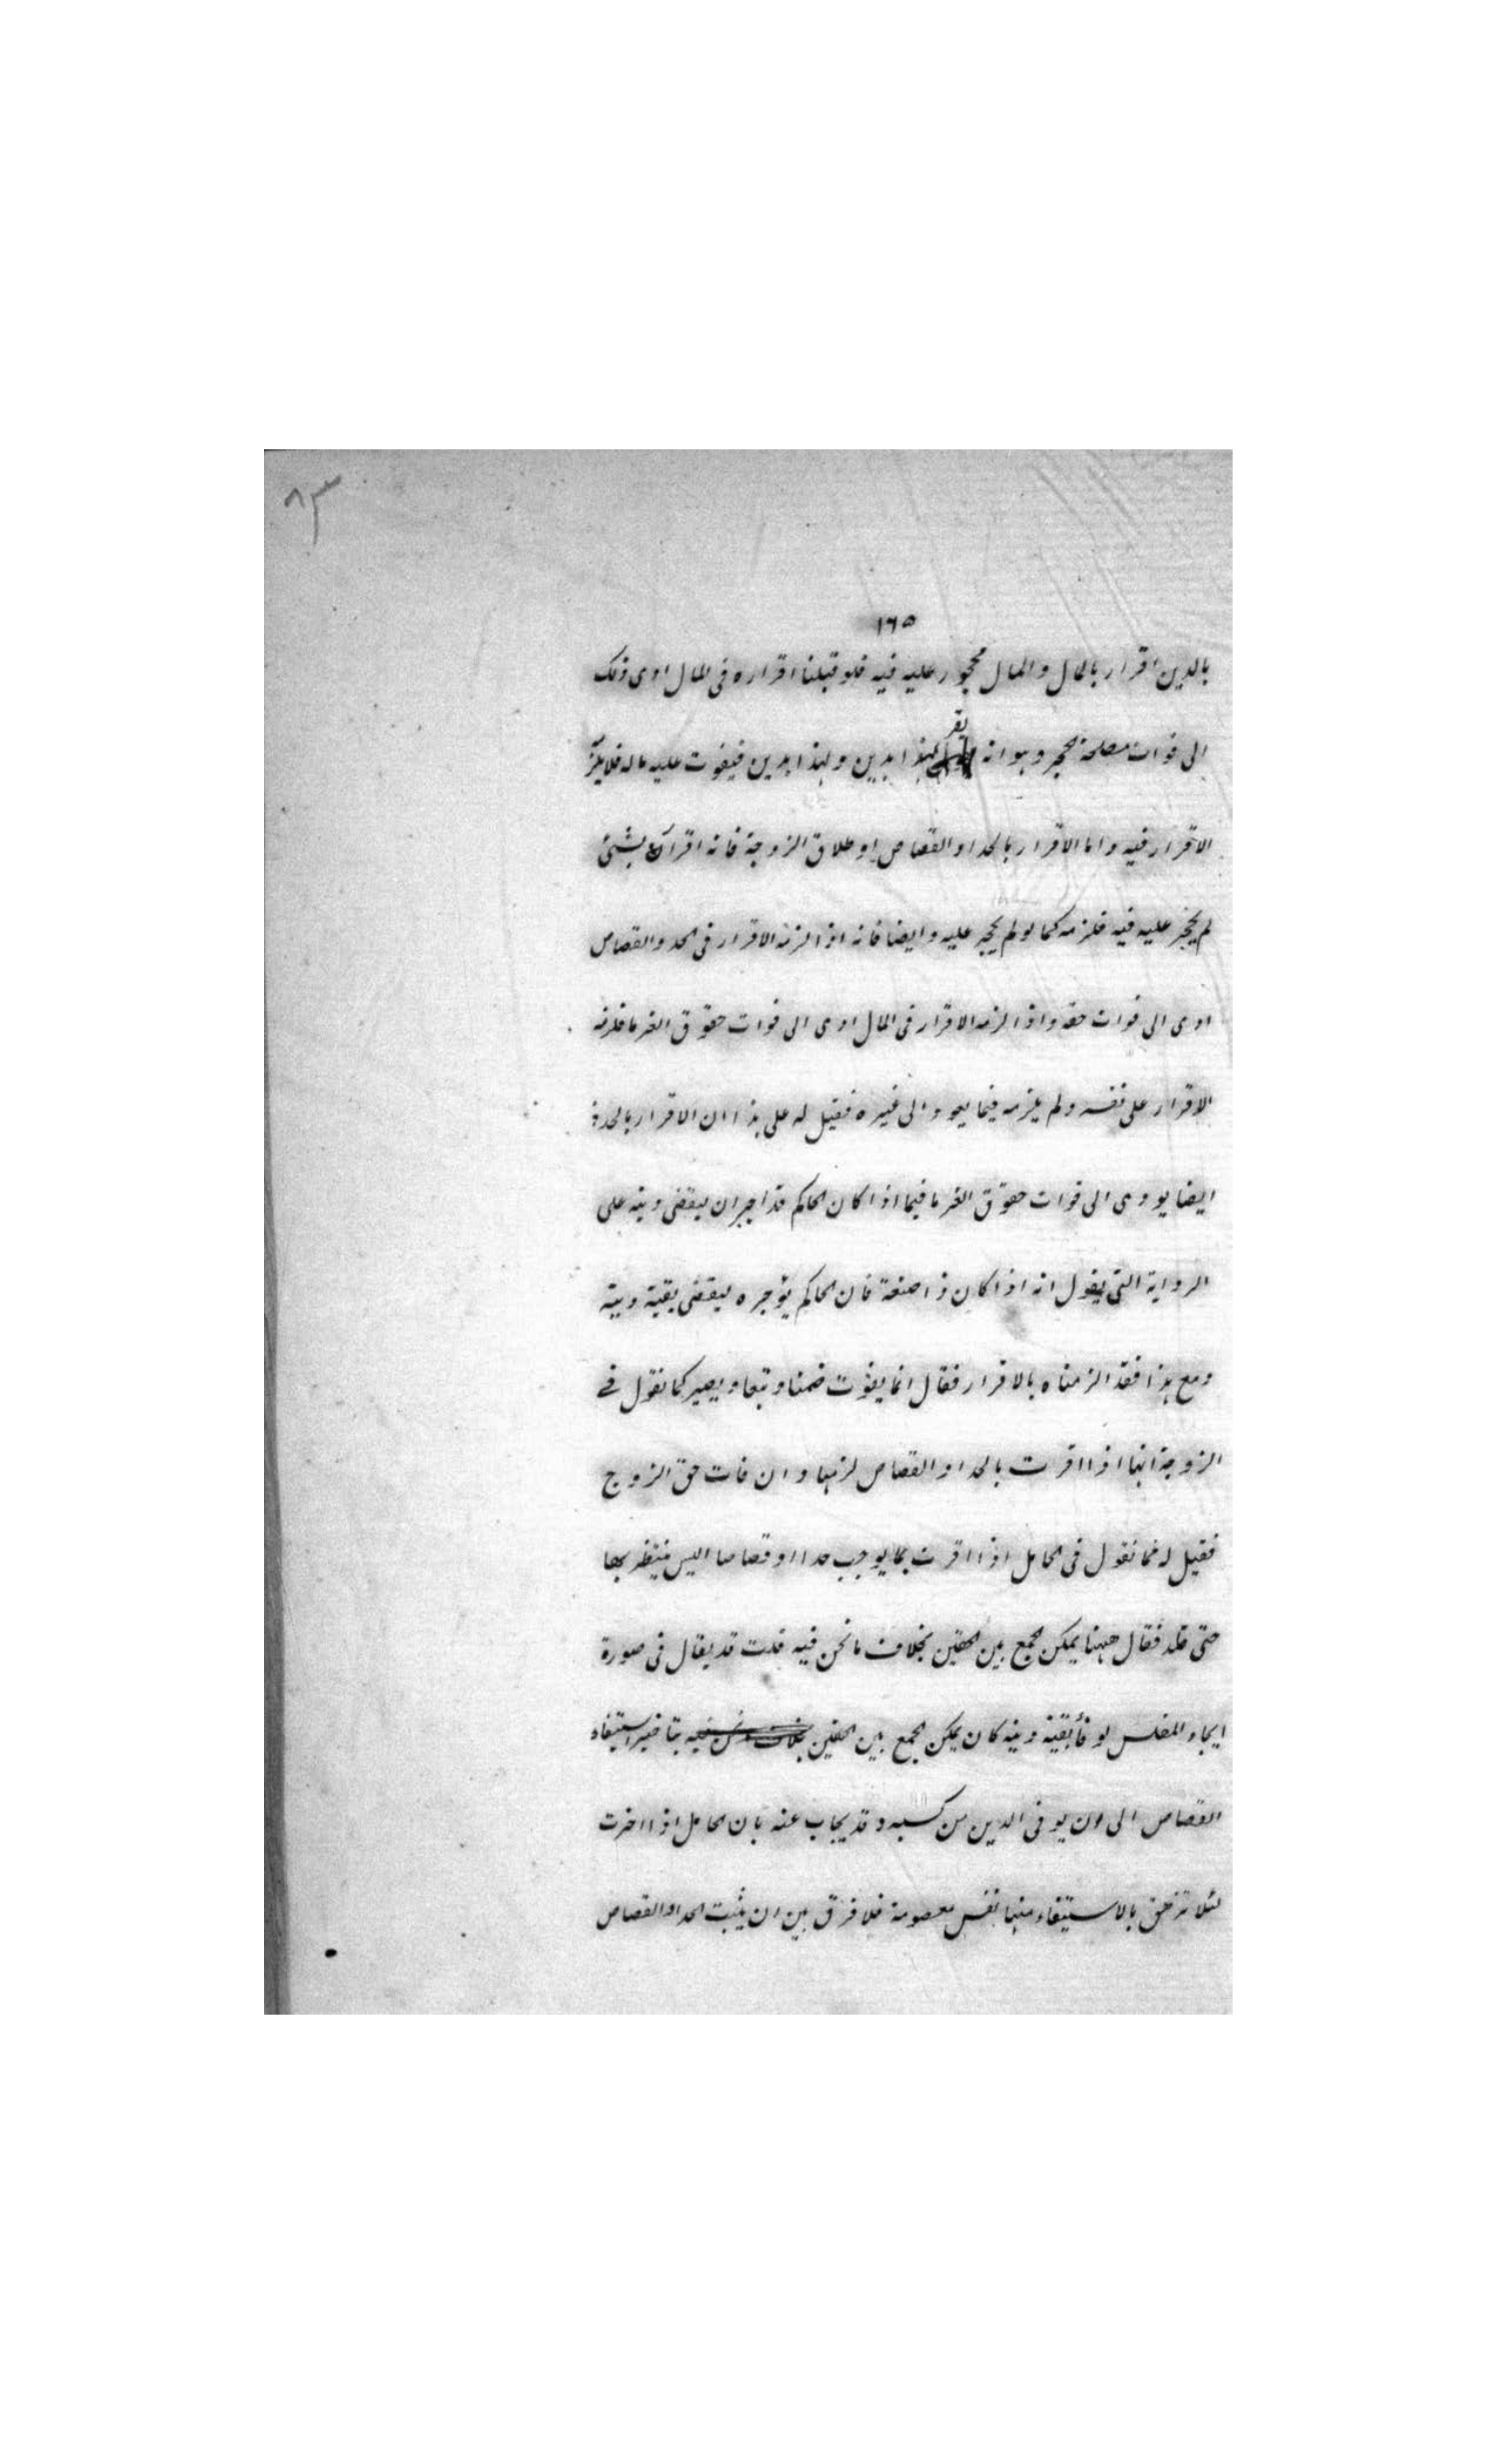 ٨٣
١٦٥
بالدين اقرار بالمال والمال محجور عليه فيه فلو قبلنا اقراره في المال ادى ذلك
الى فوات مصلحة الحجر وهو انه يقر لهذا بدين ولهذا بدين فيفوت عليه ماله فلا يلزم
الاقرار فيه واما الاقرار بالحد او القصاص او طلاق الزوجة فانه اقرار بشئ
لم يحجر عليه فيه فلزمه كما لو لم يحجر عليه وايضا فانه اذا لزمه الاقرار في الحد والقصاص
ادى الى فوات حقه واذا لزمه الاقرار في المال ادى الى فوات حقوق الغرما فلزمه
الاقرار على نفسه ولم يلزمه فيما يعود الى غيره فقيل له على هذا ان الاقرار بالحد
ايضا يودى الى فوات حقوق الغرما فيما اذا كان الحاكم قد اجره ان ليقضى دينه على
الرواية التى يقول انه اذا كان ذا صنعة فان الحاكم يؤجره ليقضى بقية دينه
ومع هذا فقد الزمناه بالاقرار فقال انما يفوت ضمنا وتبعا ويصير كما نقول في
الزوجة انها اذا اقرت بالحد او القصاص لزمها وان فات حق الزوج
فقيل له فما نقول في الحامل اذا اقرت بما يوجب حدا او قصاصا اليس ينتظر بها
حتى تلد فقال ههنا يمكن الجمع بين الحقين بخلاف ما نحن فيه قلت قد يقال في صورة
ايجاد المفلس لو فأبقية دينه كان يمكن الجمع بين الحقين بتاخير استيفاء
القصاص الى ان يوفى الدين من كسبه وقد يجاب عنه بان الحامل اذا اخرت
لئلا تزهق بالاستيفاء منها نفس معصومة فلا فرق بين ان يثبت الحد او القصاص